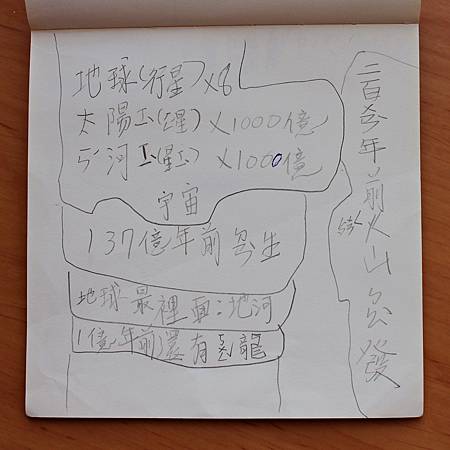 地球(行星)×8
太陽(星)×1000億
河(星)×1000億
宇宙
137億年前
生
地球最裡面:地河
1億年前還有恐龍
二百多年前火山
發